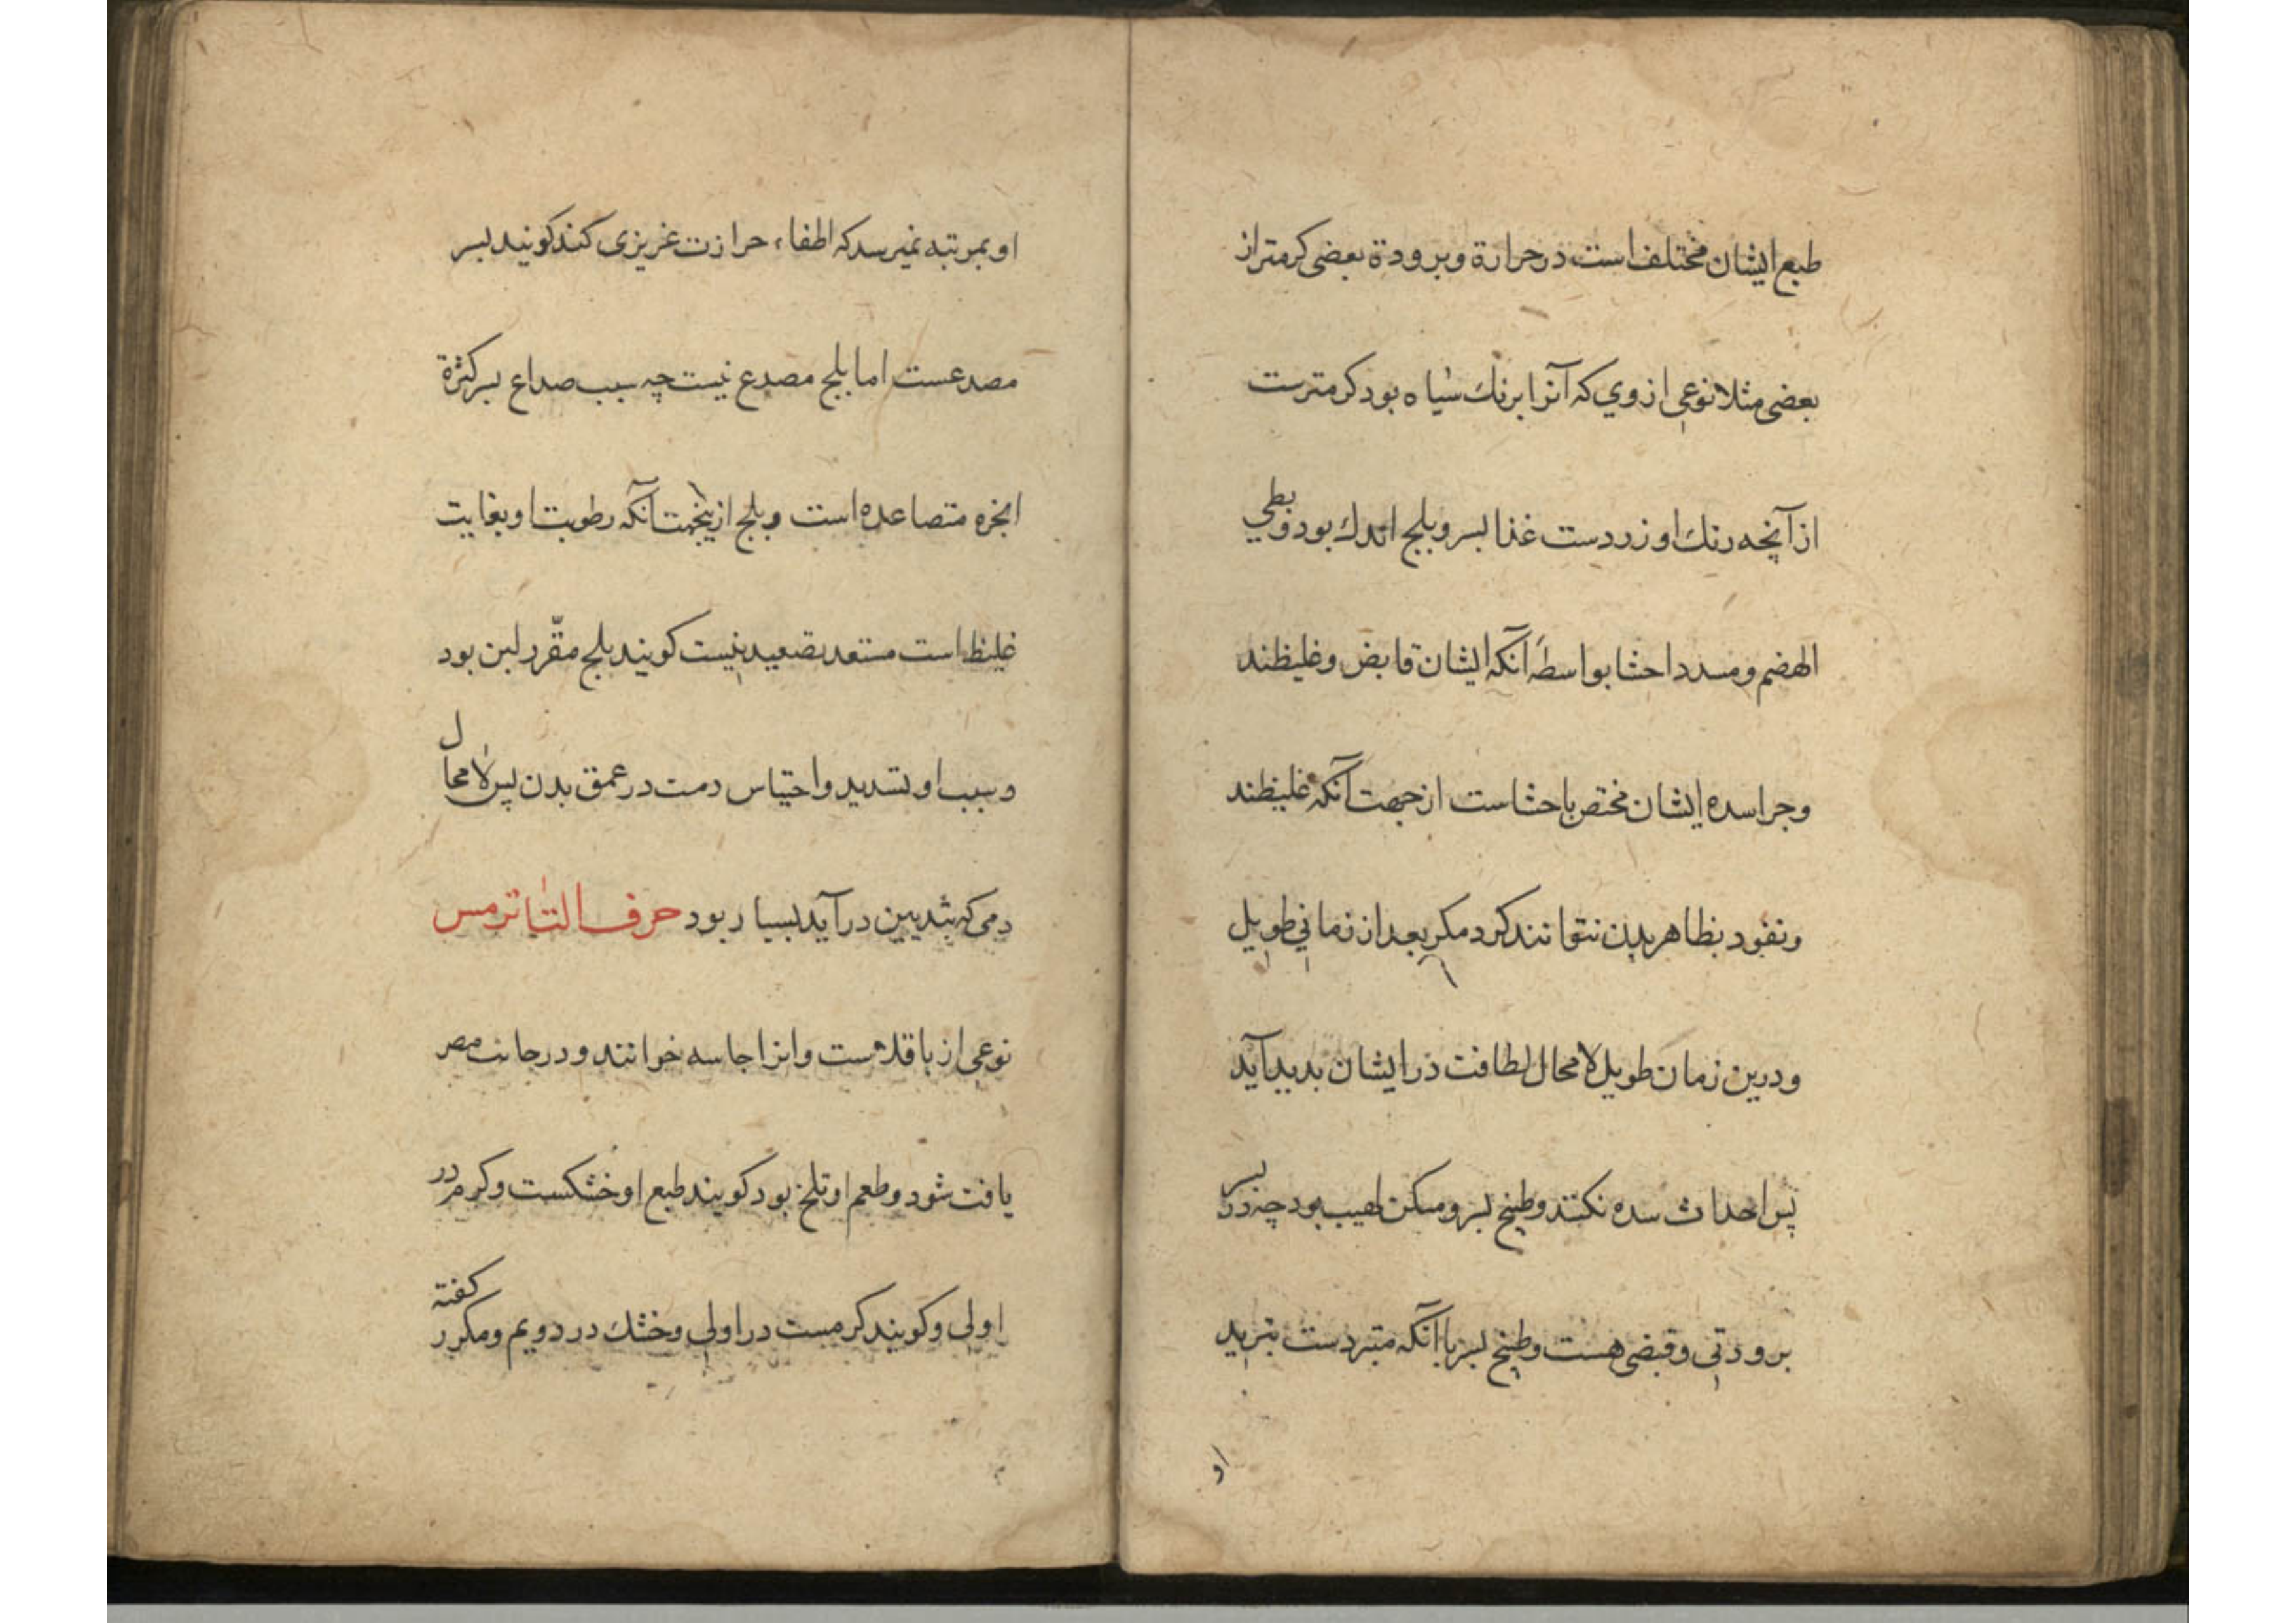 طبع ایشان مختلف است در حرارة و برودة بعضی کرمتر از
بعضی مثلا نوعی از وي که آنرا برنك سیاه بود کرمترست
از آنچه رنك او زردست غذا بسر و بلج اندك بود و بطي
الهضم و مسدد احشا بواسطه آنکه ایشان قابض و غلیظند
و چرا سده ایشان مختص باحشاست از جهت آنکه غلیظند
و نفود بظاهر بدن نتوانند کرد مکر بعد از زماني طویل
و درین زمان طویل لامحال لطافت در ایشان بدید آید
پس احداث سده نکنند و طبیخ بسر و مسکن لهیب بود چه در بسر
برودتی و قبضی هست و طبیخ بسر با آنکه متبردست تبرید
او
او بمرتبه نمیرسد که اطفاء حرارت غریزی کند کویند بسر
مصدعست اما بلج مصدع نیست چه سبب صداع بسر کثرة
ابخره متصاعده است و بلج ازینجهت آنکه رطوبت او بغایت
غلیظ است مستعد تصعید نیست کویند بلج مقرر لبن بود
و سبب او تسدید و احتباس دمت در عمق بدن پس لامحال
دمی که بثدیین در آید بسیار بود حرف التا ترمس
نوعی از باقلاست و انرا جاسه خوانند و در جانب مصر
یافت شود و طعم او تلخ بود کویند طبع او خشکست و کرم در
اولی و کویند کرمست در اولی و خشك در دویم و مکرر کفته